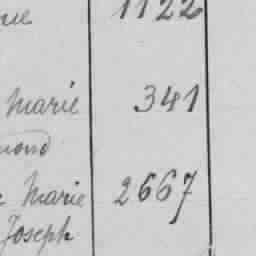 1122
Marie 341
Marie 2667
Joseph